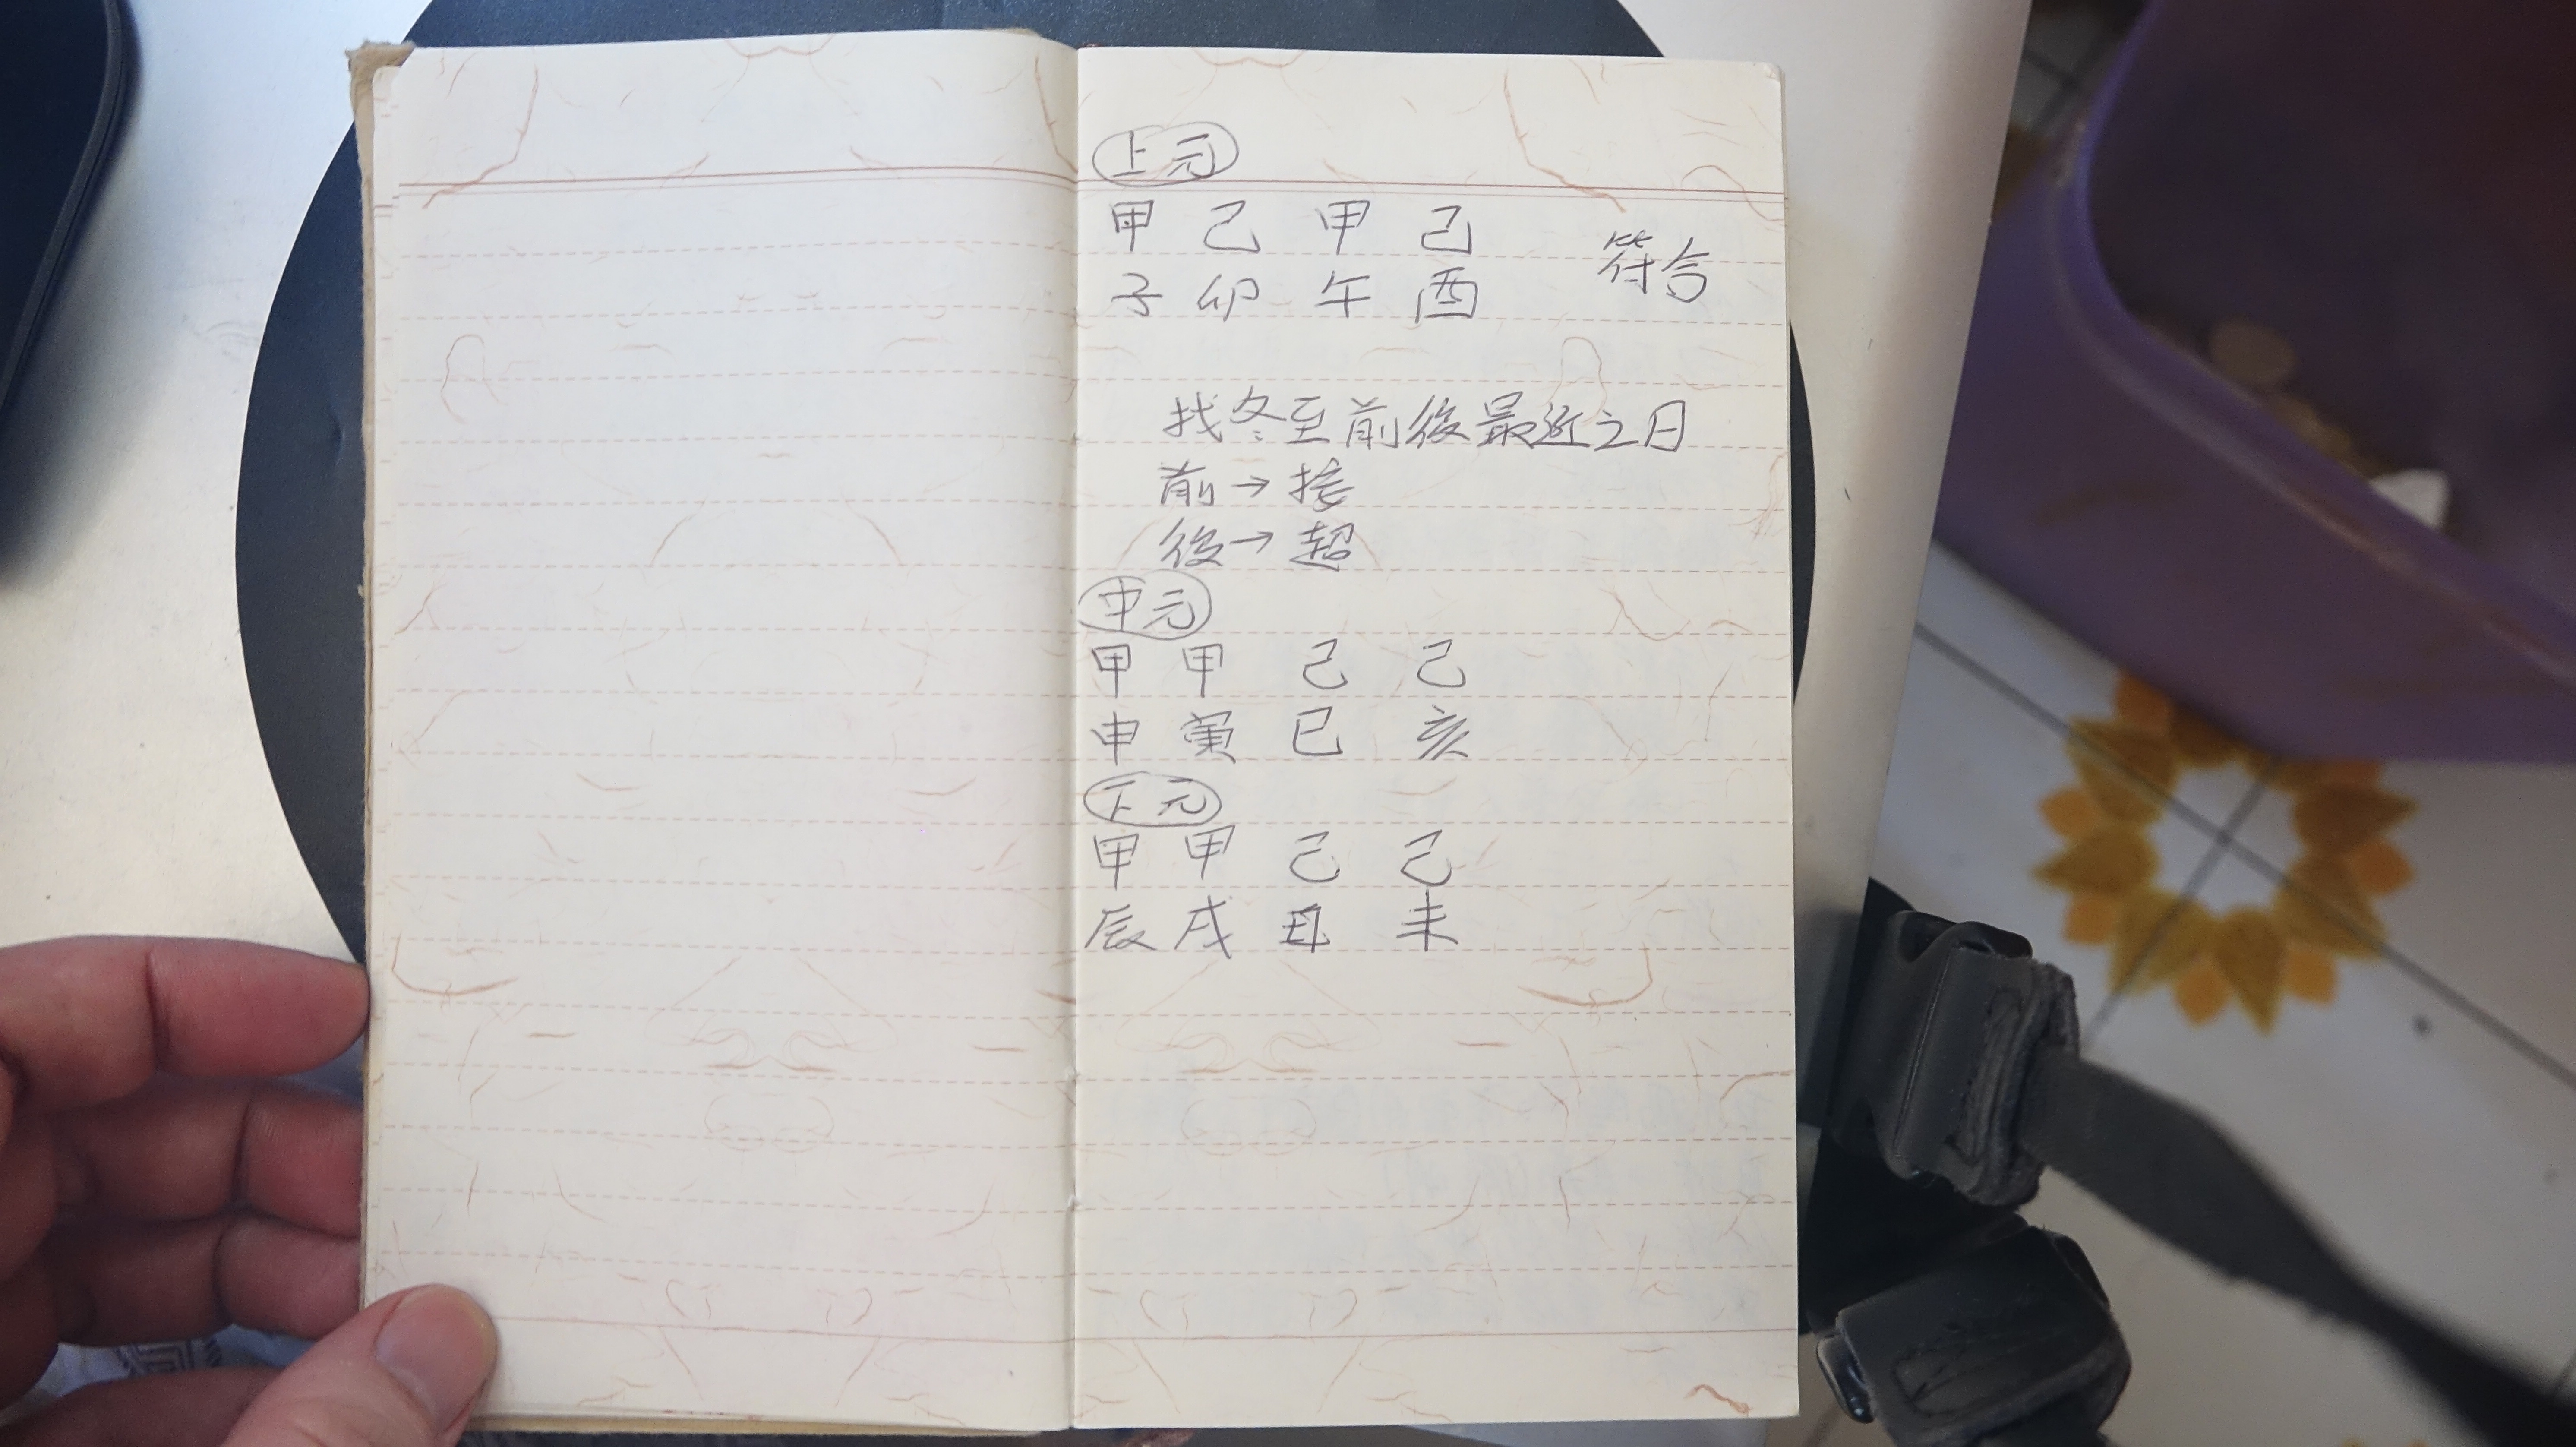 上元
甲 己 甲 己
子 卯 午 酉
符合
找冬至前後最近之日
前→接
後→超
中元
甲 甲 己 己
申 寅 巳 亥
下元
甲 甲 己 己
辰 戌 丑 未